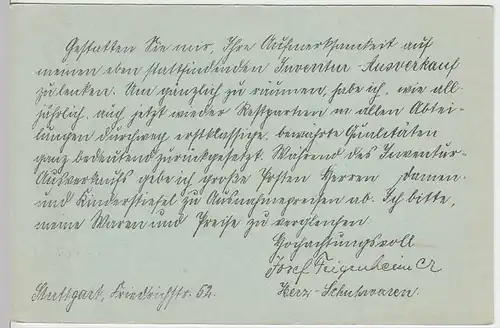 Gestatten Sie mir, Ihre Aufmerksamkeit auf
meinen eben stattfindenden Inventur-Ausverkauf
zu lenken. Um gänzlich zu räumen, habe ich, wie all-
jährlich, auch jetzt wieder Restpartien in allen Abtei-
lungen durchweg erstklassige, bewährte Qualitäten
ganz bedeutend zurückgesetzt. Während des Inventur-
Ausverkaufs gebe ich große Posten Herren, Damen
und Kinderstiefel zu Ausnahmepreisen ab. Ich bitte,
meine Waren und Preise zu vergleichen
Hochachtungsvoll
Josef Feigenheimer
Stuttgart, Friedrichstr. 62. Herz-Schuhwaren.